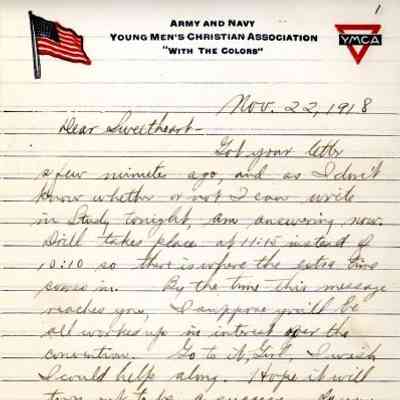 1
ARMY AND NAVY
YOUNG MEN'S CHRISTIAN ASSOCIATION
"WITH THE COLORS"
YMCA
Nov. 22, 1918
Dear Sweetheart-
Got your letter
a few minutes ago, and as I don't
know whether or not I can write
in Study tonight, am answering now.
Drill takes place at 11:15 instead of
10:10 so there is where the extra time
comes in. By the time this message
reaches you, I suppose you'll be
all worked up in interest over the
convention. Go to it, Girl, I wish
I could help along. Hope it will
turn out to be a success.